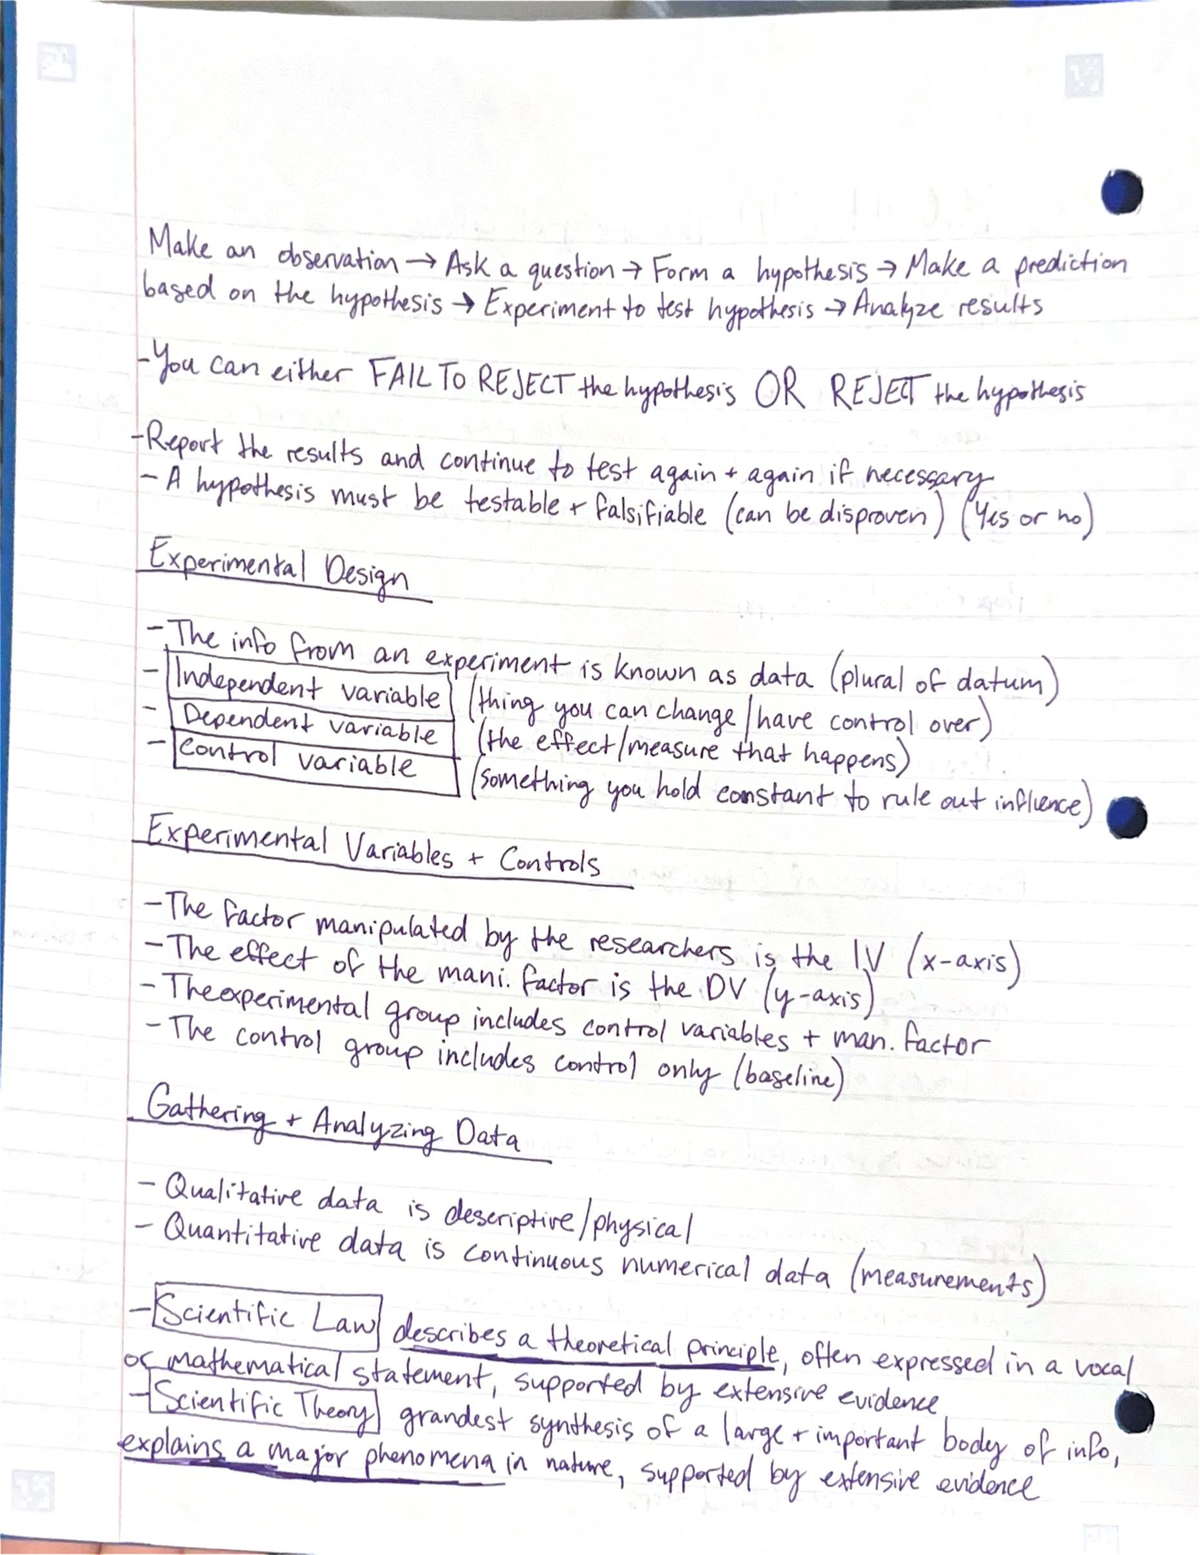 Make an observation → Ask a question → Form a hypothesis → Make a prediction
based on the hypothesis → Experiment to test hypothesis → Analyze results
-You can either FAIL TO REJECT the hypothesis OR REJECT the hypothesis
-Report the results and continue to test again + again if necessary
- A hypothesis must be testable + falsifiable (can be disproven) (Yes or no)
Experimental Design
- The info from an experiment is known as data (plural of datum)
- Independent variable (thing you can change/have control over)
- Dependent variable (the effect/measure that happens)
- Control variable (something you hold constant to rule out influence)
Experimental Variables + Controls
- The factor manipulated by the researchers is the IV (x-axis)
- The effect of the mani. factor is the DV (y-axis)
- The experimental group includes control variables + man. factor
- The control group includes control only (baseline)
Gathering + Analyzing Data
- Qualitative data is descriptive/physical
- Quantitative data is continuous numerical data (measurements)
- Scientific Law describes a theoretical principle, often expressed in a vocal
or mathematical statement, supported by extensive evidence
- Scientific Theory grandest synthesis of a large + important body of info,
explains a major phenomena in nature, supported by extensive evidence